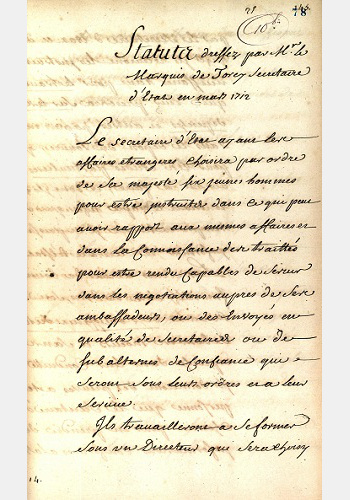 18
10.
Statuts dressez par Mr. le
Marquis de Torcy Secretaire
d'Estat en mars 1712
Le secretaire d'Estat ayant les
affaires etrangeres choisira par ordre
de Sa majesté six jeunes hommes
pour estre instruits dans ce qui peut
avoir rapport aux mesmes affaires et
dans la Connoissance des traittés
pour estre rendu Capables de Servir
dans les negotiations aupres de Ses
ambassadeurs, ou des Envoyés en
qualité de Secretaires ou de
subalternes de Confiance qui
Seront sous leurs ordres et a leur
Service.
Ils travailleront a se former
Sous un Directeur qui sera choisy
4.